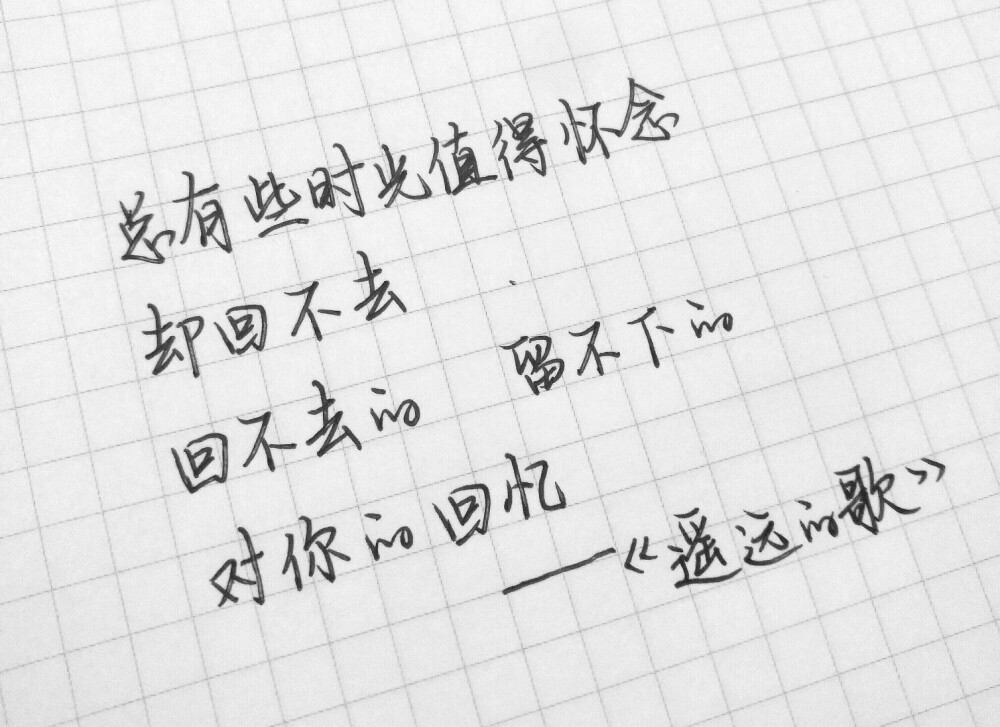 总有些时光值得怀念
却回不去
回不去的 留不下的
对你的回忆
——《遥远的歌》